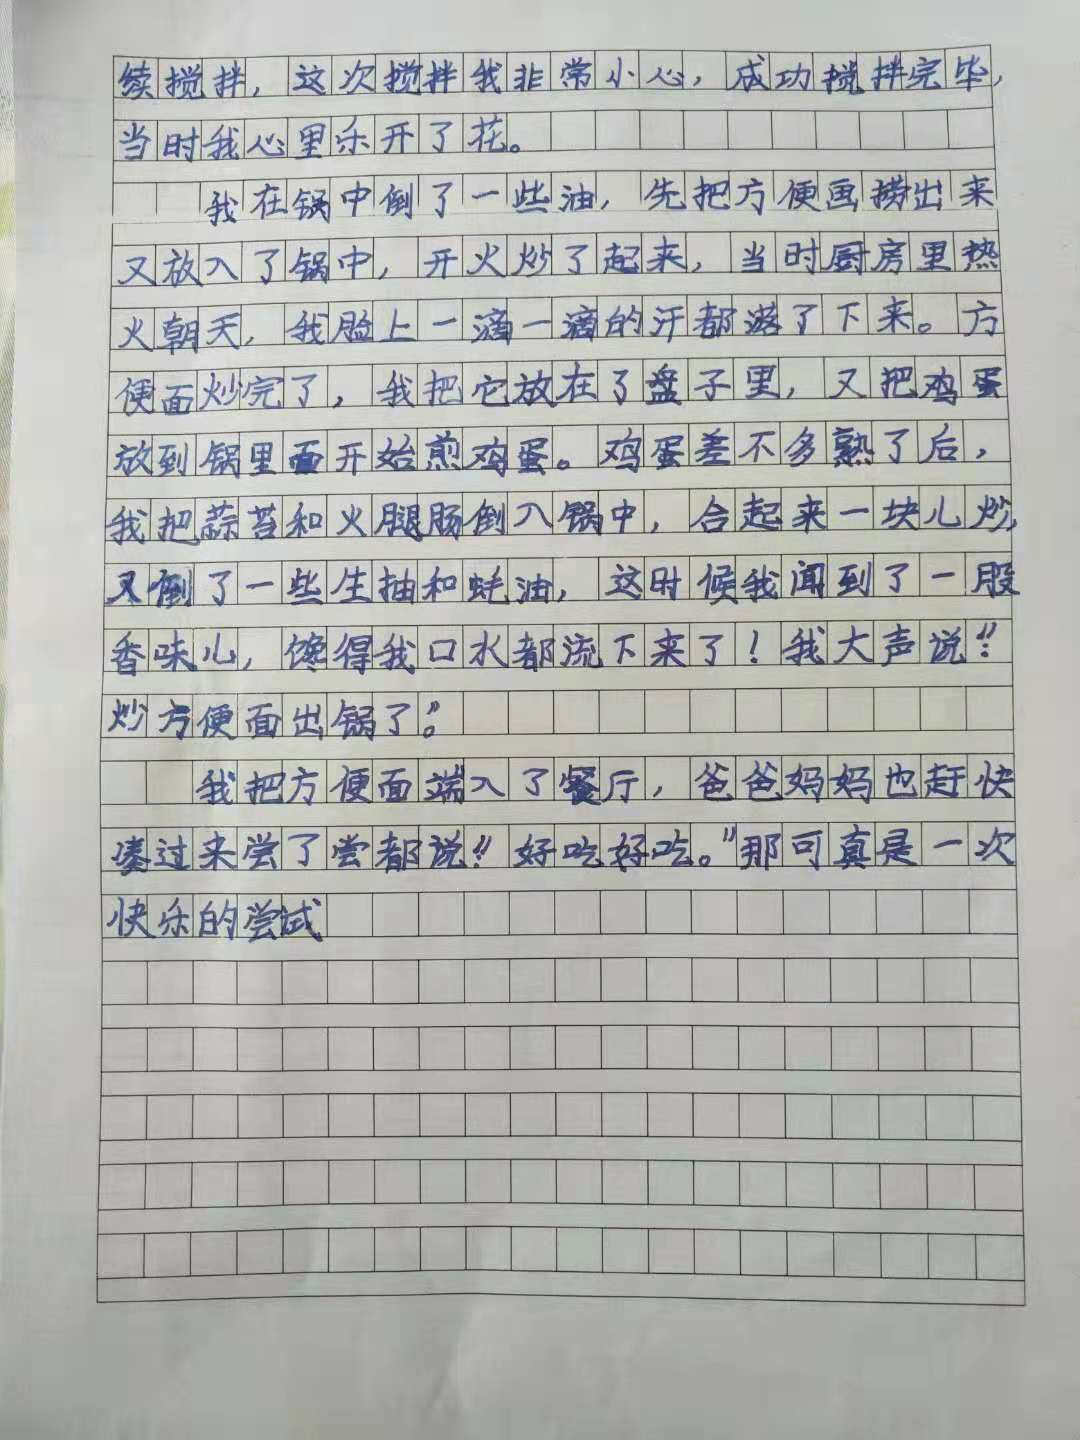 续搅拌，这次搅拌我非常小心，成功搅拌完毕，
当时我心里乐开了花。
我在锅中倒了一些油，先把方便画捞出来
又放入了锅中，开火炒了起来，当时厨房里热
火朝天，我脸上一滴一滴的汗都落了下来。方
便面炒完了，我把它放在了盘子里，又把鸡蛋
放到锅里面开始煎鸡蛋。鸡蛋差不多熟了后，
我把蒜苔和火腿肠倒入锅中，合起来一块儿炒
又倒了一些生抽和蚝油，这时候我闻到了一股
香味儿，馋得我口水都流下来了！我大声说：“
炒方便面出锅了。”
我把方便面端入了餐厅，爸爸妈妈也赶快
凑过来尝了尝都说：“好吃好吃。”那可真是一次
快乐的尝试